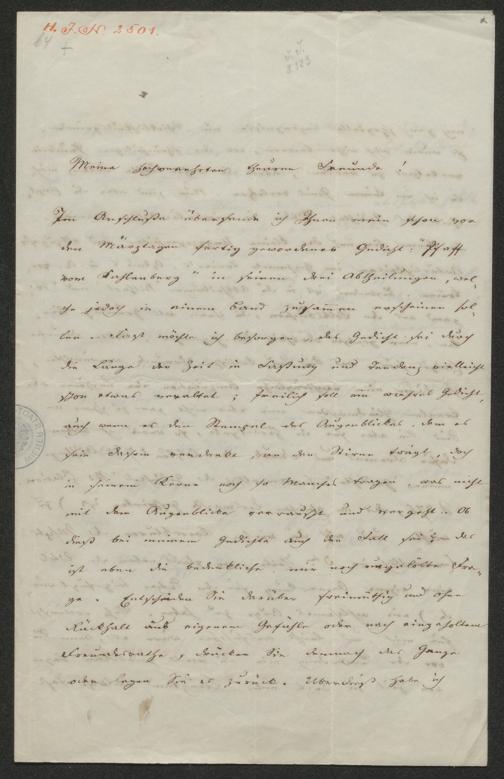 H. J. N. 2501.
84
Meine hochverehrten theuren Freunde!
Im Anschlusse übersende ich Ihnen mein schon vor
den Märztagen fertig gewordenes Gedicht: "Pfaff
vom Kahlenberg" in seinen drei Abtheilungen, wel-
che jedoch in einem Band zusammen erscheinen sol-
len. Fast möchte ich besorgen, das Gedicht sei durch
die Länge der Zeit in Fassung und Tendenz vielleicht
schon etwas veraltet; freilich soll ein wahres Gedicht,
auch wenn es den Stempel des Augenblickes, dem es
sein Dasein verdankt, an der Stirne trägt, doch
in seinem Kerne noch so Manches tragen, was nicht
mit dem Augenblicke verrauscht und vergeht. Ob
dieß bei meinem Gedichte auch der Fall sei, das
ist eben die bedenkliche mir noch ungelöste Fra-
ge. Entscheiden Sie darüber freimüthig und ohne
Rückhalt aus eigenem Gefühle oder nach eingeholtem
Freundesrathe, drucken Sie demnach das Ganze
oder legen Sie es zurück. Überdieß habe ich